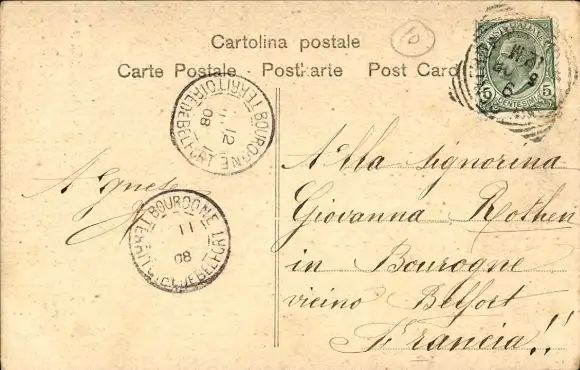 Cartolina postale
10
Carte Postale Postkarte Post Card
5 CENTESIMI 5
BOUROGNE
12
08
TERRITOIRE DE BELFORT
Agnese
BOUROGNE
11
08
TERRIT. DE BELFORT
Alla signorina
Giovanna Rothen
in Bourogne
vicino Belfort
Francia!!